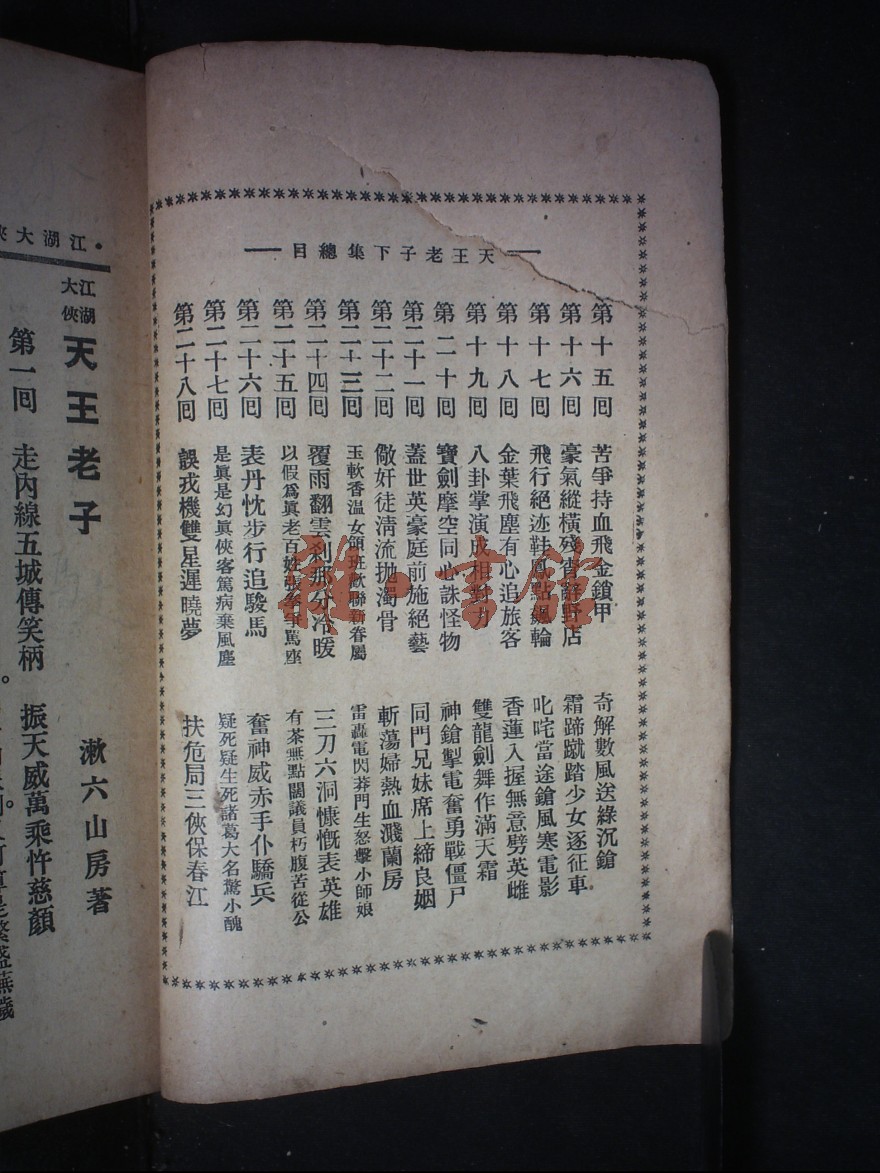 天王老子下集總目
第十五回 苦爭持血飛金鎖甲 奇解數風送綠沉鎗
第十六回 豪氣縱橫殘宵辭野店 霜蹄蹴踏少女逐征車
第十七回 飛行絕迹鞋鳳點飆輪 叱咤當途鎗風寒電影
第十八回 金葉飛塵有心追旅客 香蓮入握無意劈英雌
第十九回 八卦掌演成相對力 雙龍劍舞作滿天霜
第二十回 寶劍摩空同心誅怪物 神鎗掣電奮勇戰僵尸
第二十一回 蓋世英豪庭前施絕藝 同門兄妹席上締良姻
第二十二回 儆奸徒清流拋濁骨 斬蕩婦熱血濺蘭房
第二十三回 玉軟香温女領班歡聯新眷屬 雷轟電閃莽門生怒擊小師娘
第二十四回 覆雨翻雲刹那分冷暖 三刀六洞慷慨表英雄
第二十五回 以假爲眞老百姓張拳爭罵座 有茶無點闊議員朽腹苦從公
第二十六回 表丹忱步行追駿馬 奮神威赤手仆驕兵
第二十七回 是眞是幻眞俠客篤病乘風塵 疑死疑生死諸葛大名驚小醜
第二十八回 誤戎機雙星遲曉夢 扶危局三俠保春江
江湖大俠
江湖大俠 天王老子 漱六山房著
第一回 走內線五城傳笑柄 振天威萬乘忤慈顏
雅·書館